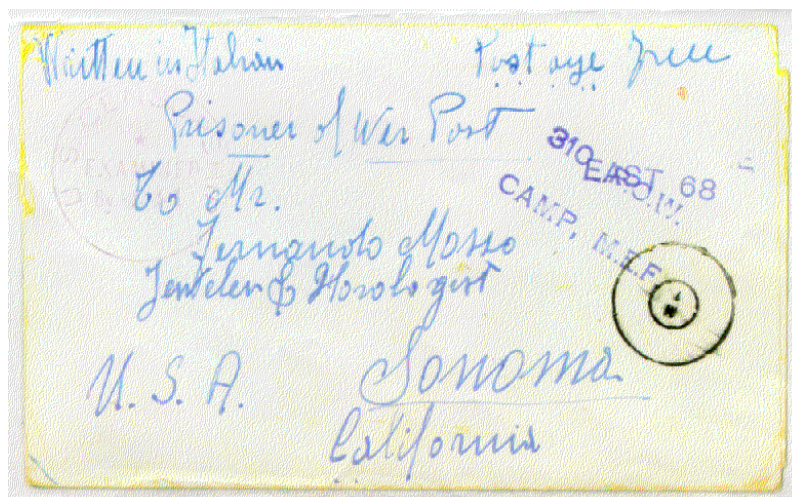 Written in Italian
Postage Free
Prisoner of War Post
310 EAST 68
P.O.W.
CAMP, M.E.F.
U.S.
EXAMINED
By
To Mr.
Fernando Mosso
Jeweler & Horologist
U. S. A.
Sonoma
California